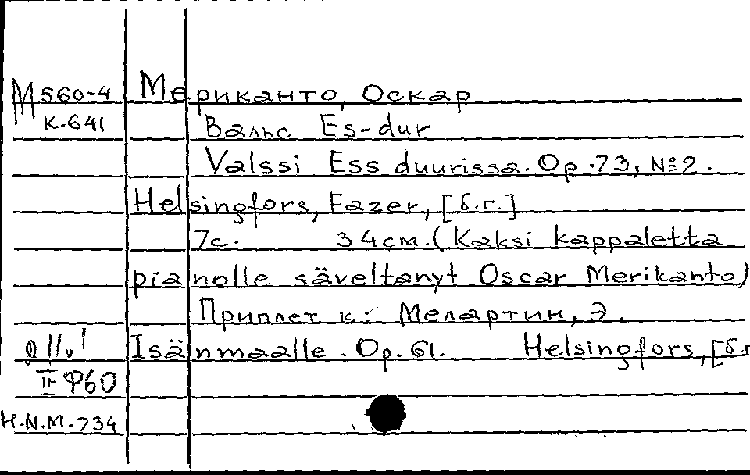 М560-4 Мериканто, Оскар
К-641 Вальс Es-dur
Valssi Ess duurissa. Op.73, №2.
Helsingfors, Fazer, [б.г.]
7с. 34см. (Kaksi kappaletta
pianolle säveltanyt Oscar Merikanto)
Приплет к: Мелартин, Э.
Isänmaalle. Op. 61. Helsingfors, [б.г
II Ф60
H.N.M.-734